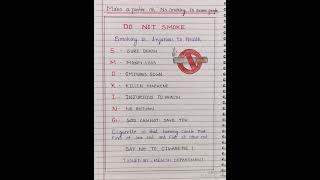 Make a poster on No smoking to aware people
DO NOT SMOKE
Smoking is Injurious to Health
S - SURE DEATH
M - MONEY LOSS
O - OMINOUS SIGN
K - KILLER MACHINE
I - INJURIOUS TO HEALTH
N - NO RETURN
G - GOD CANNOT SAVE YOU
Cigarette is that burning candle that
Fire at one end and Fool at other end
SAY NO TO CIGARETTE !
ISSUED BY HEALTH DEPARTMENT